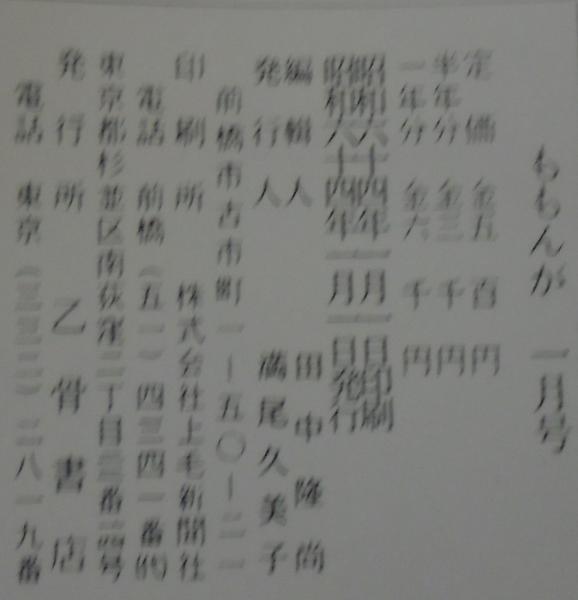 ももんが 一月号
定価 金五百円
半年分 金三千円
一年分 金六千円
昭和六十四年一月一日印刷
昭和六十四年一月一日発行
編輯人 田中隆尚
発行人 満尾久美子
前橋市古市町一ー五〇ー二一
印刷所 株式会社上毛新聞社
電話 前橋(五一)四三四一番代
東京都杉並区南荻窪二丁目三番二四号
発行所 乙骨書店
電話 東京(三三二)二八一九番